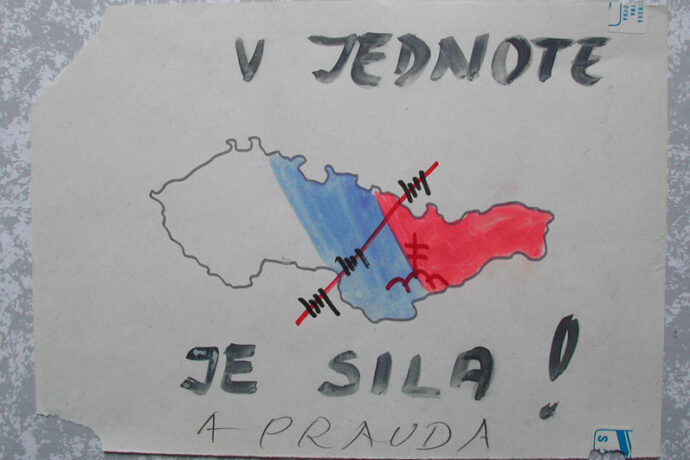 V JEDNOTE
JE SILA!
A PRAVDA